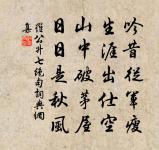 吟昔從軍瘦
生涯出仕空
山中破茅屋
日日是秋風
羅公升七絕句詞典網